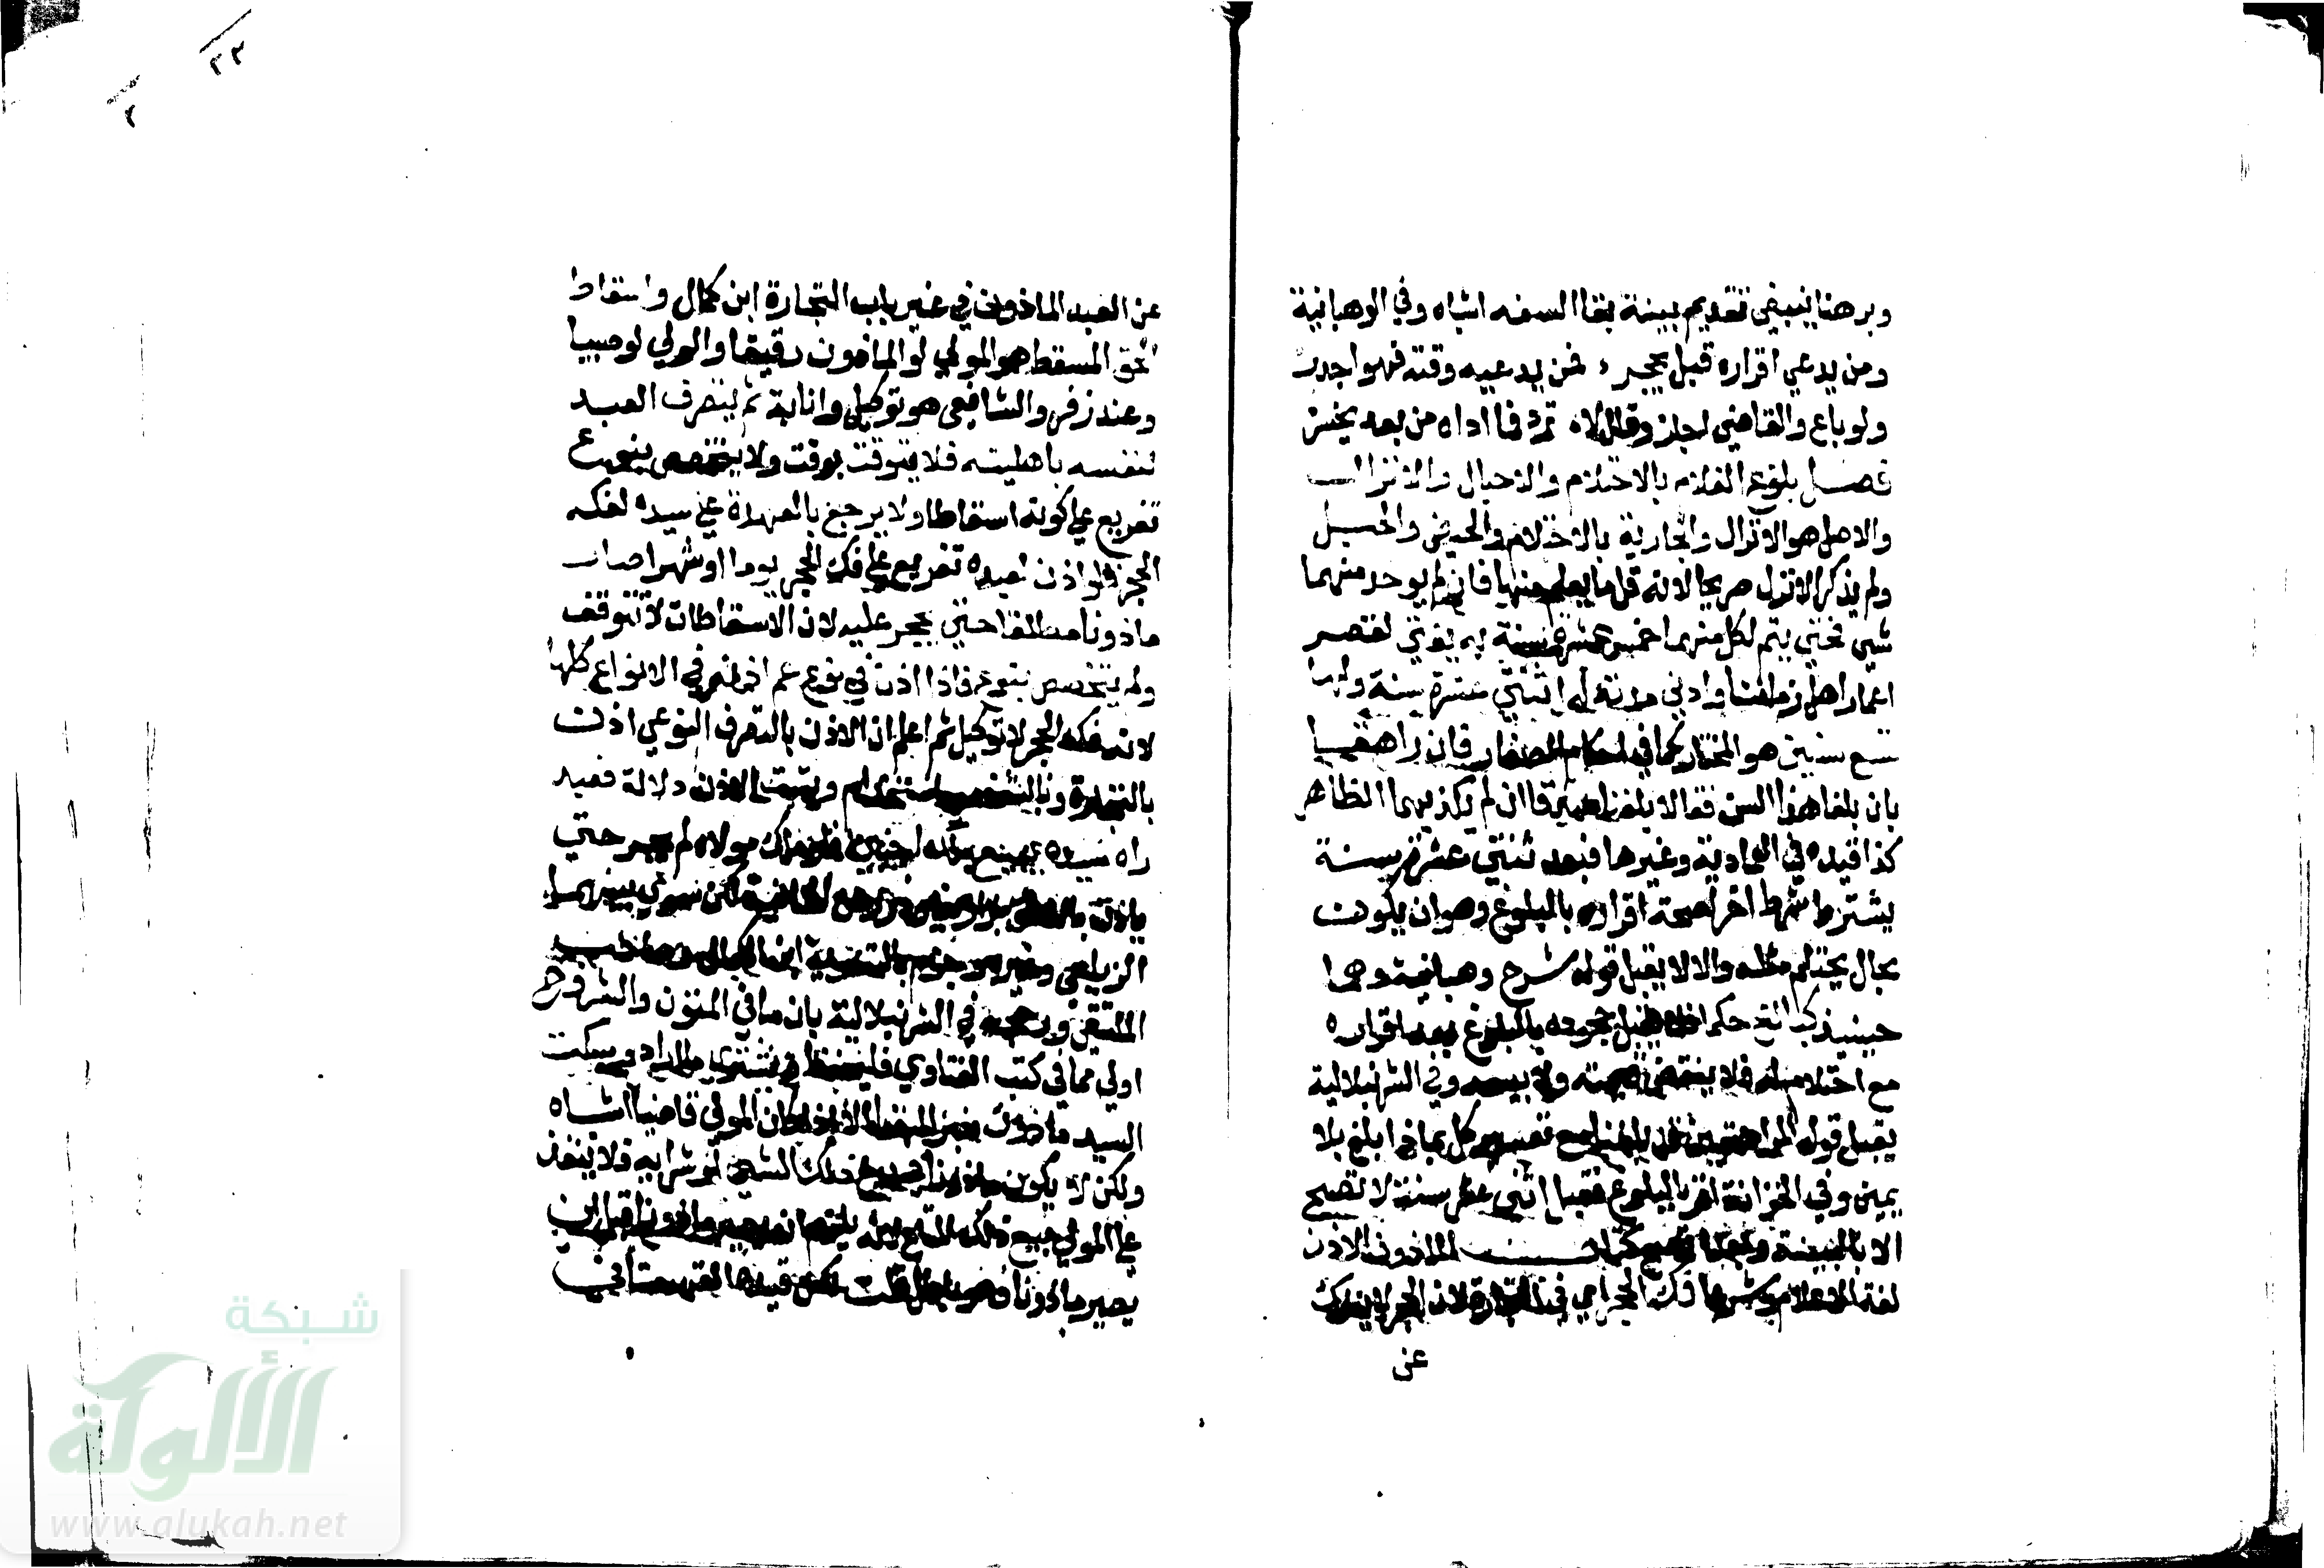 وبرهنا ينبغي تقديم بينة بقا السفه اشباه وفي الوهبانية
ومن يدعي اقراره قبل يحجر فمن يدعيه وقته فهو اجدر
ولو باع والقاضي اجاز وقال لا تؤد فا اداه من بعد يخسر
فصل بلوغ الغلام بالاحتلام والاحبال والانزال
والاصل هو الانزال والجارية بالاحتلام والحيض والحبل
ولم يذكر الانزل صريحا لانه قل ما يعلم منها فان لم يوجد منهما
شي فحتي يتم لكل منهما خمس عشرة سنة به يفتي لقصر
اعمار اهل زماننا وادني مدته له اثنتي عشرة سنة ولها
تسع سنين هو المختار كما في احكام الصغار فان راهقا
بان بلغا هذا السن فقالا بلغنا صدقا ان لم يكذبهما الظاهر
كذا قيده في العمادية وغيرها فبعد ثنتي عشرة سنة
يشترط شرط اخر لصحة اقراره بالبلوغ وهو ان يكون
بحال يحتلم مثله والا لا يقبل قوله شرح وهبانية وهما
حينيذ كبالغ حكما فلا يقبل جحوده بالبلوغ بعد اقراره
مع احتلام مثله فلا ينتقض قسمته ولا بيعه وفي الشرنبلالية
يقبل قول المراهقين قد بلغنا مع تفسير كل بماذا بلغ بلا
يمين وفي الخزانة اقر بالبلوغ فقبل اثني عشر سنة لا تصح
الا بالبينة وبعدها تصح كتاب الماذون الاذن
لغة الاعلام وشرعا فك الحجر اي في التجارة لان الحجر لا ينفك
عن
٢٣
٢
عن العبد الماذون في غير باب التجارة ابن كمال واسقاط
الحق المسقط هو المولي لو الماذون رقيقا والولي لو صبيا
وعند زفر والشافعي هو توكيل وانابة ثم يتصرف العبد
لنفسه باهليته فلا يتوقت بوقت ولا يتخصص بنوع
تفريع علي كونه اسقاطا ولا يرجع بالعهدة علي سيده لفكه
الحجر فلو اذن لعبده تفريع علي فك الحجر يوما او شهرا صار
ماذونا مطلقا حتي يحجر عليه لان الاسقاطات لا تتوقف
ولم يتخصص بنوع فاذا اذن في نوع عم اذنه في الانواع كلها
لانه فك الحجر لا توكيل ثم اعلم ان الاذن بالتصرف النوعي اذن
بالتجارة وبالشخصي استخدام ويثبت الاذن دلالة فعبد
راه سيده يبيع ملك اجنبي فلو ملك مولاه لم يجز حتي
ياذن بالنطق لكن سوي بينهما
الزيلعي وغيره وجزم بالتسوية ابن الكمال وصاحب
الملتقي ورجحه في الشرنبلالية بان ما في المتون والشروح
اولي مما في كتب الفتاوي فليحفظ ويشتري ما اراد وسكت
السيد ماذون خبر المبتدا الا اذا كان المولي قاضيا اشباه
ولكن لا يكون ماذونا في بيع ذلك الشي او شرايه فلا ينفذ
علي المولي بيع ذلك المتاع لانه يلزم ان يصير ماذونا قبل ان
يصير ماذونا وهو باطل قلت لكن قيده القهستاني
شبكة
الألوكة
www.alukah.net